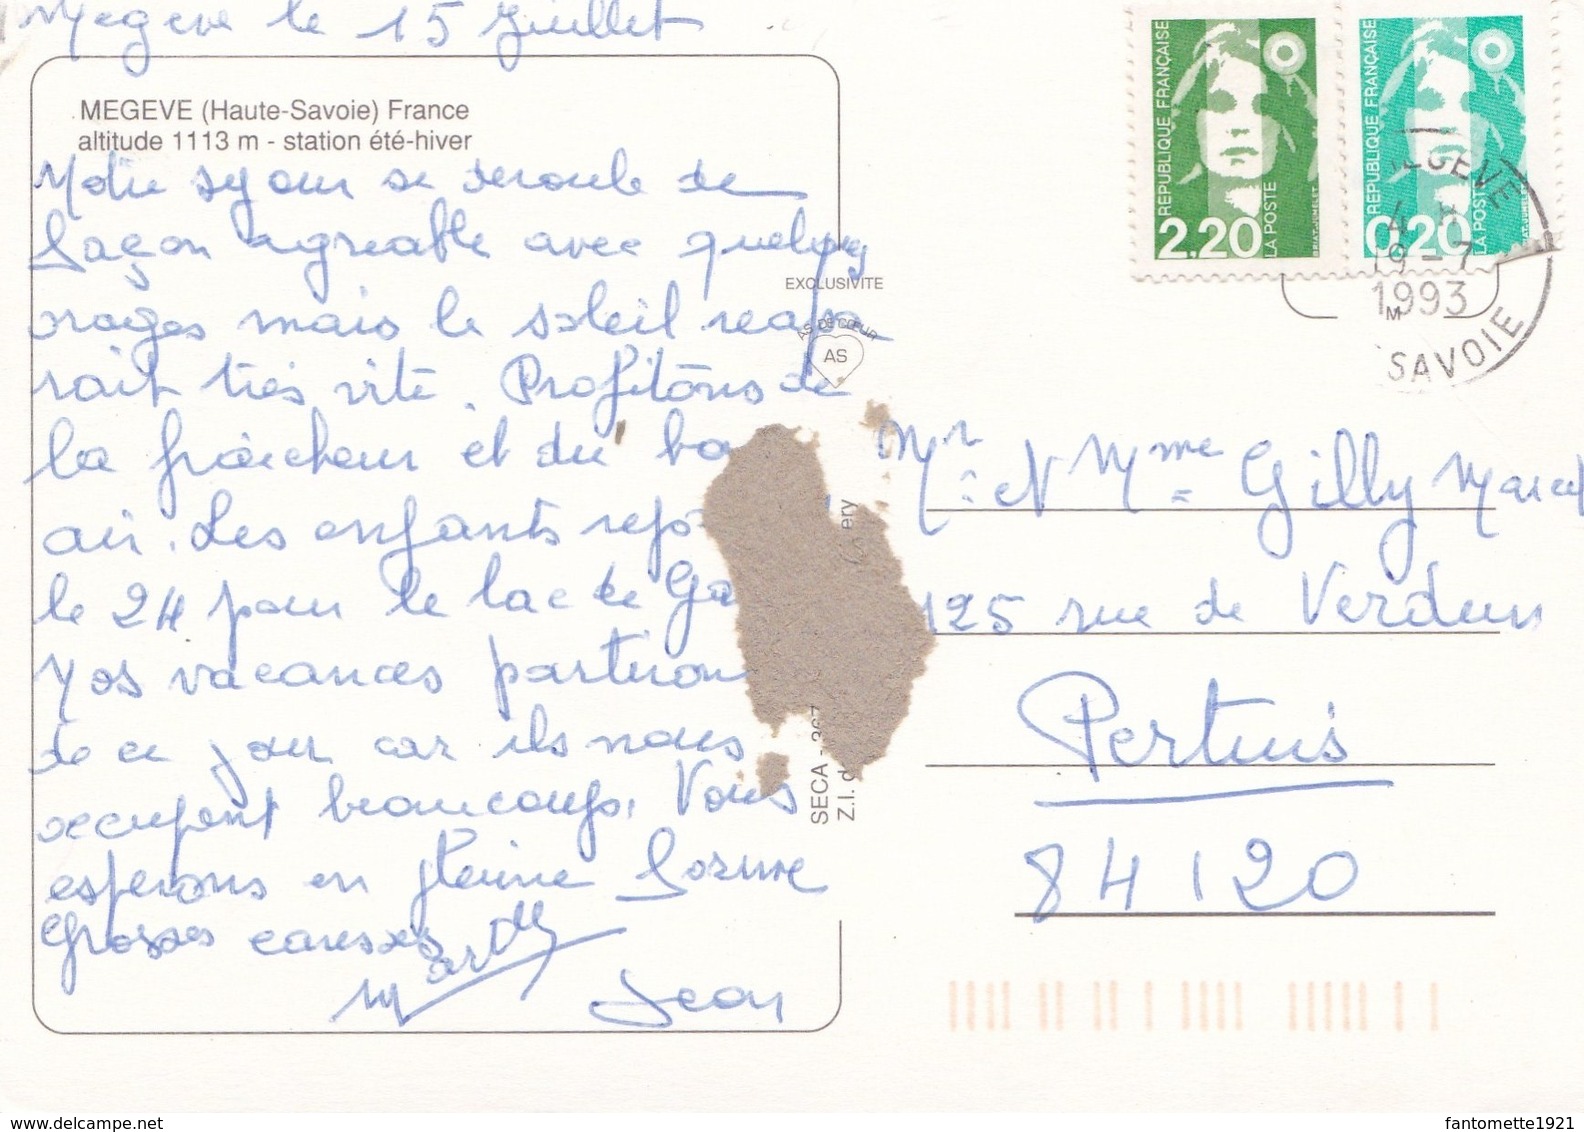 Megève le 15 Juillet
MEGEVE (Haute-Savoie) France
altitude 1113 m - station été-hiver
Notre sejour se deroule de
façon agreable avec quelques
orages mais le soleil reapa
rait très vite. Profitons de
la fraicheur et du bo
air. Les enfants repo
le 24 pour le lac de Ga
Nos vacances partiron
de ce jour car ils nous
occupent beaucoup. Vous
esperons en pleine forme
Grosses caresses
Jean
EXCLUSIVITE
AS DE CŒUR
AS
SECA - 367
Z.I. d
ery
REPUBLIQUE FRANÇAISE
2,20
LA POSTE
REPUBLIQUE FRANÇAISE
0,20
LA POSTE
MEGEVE
19-7
1993
SAVOIE
Mr et Mme Gilly Marcel
125 rue de Verdun
Pertuis
84120
fantomette1921